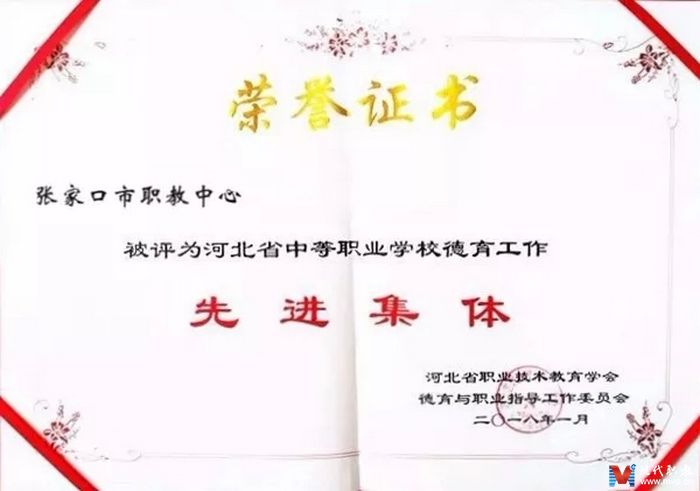 荣誉证书
张家口市职教中心
被评为河北省中等职业学校德育工作
先进集体
河北省职业技术教育学会
德育与职业指导工作委员会
二〇一八年一月